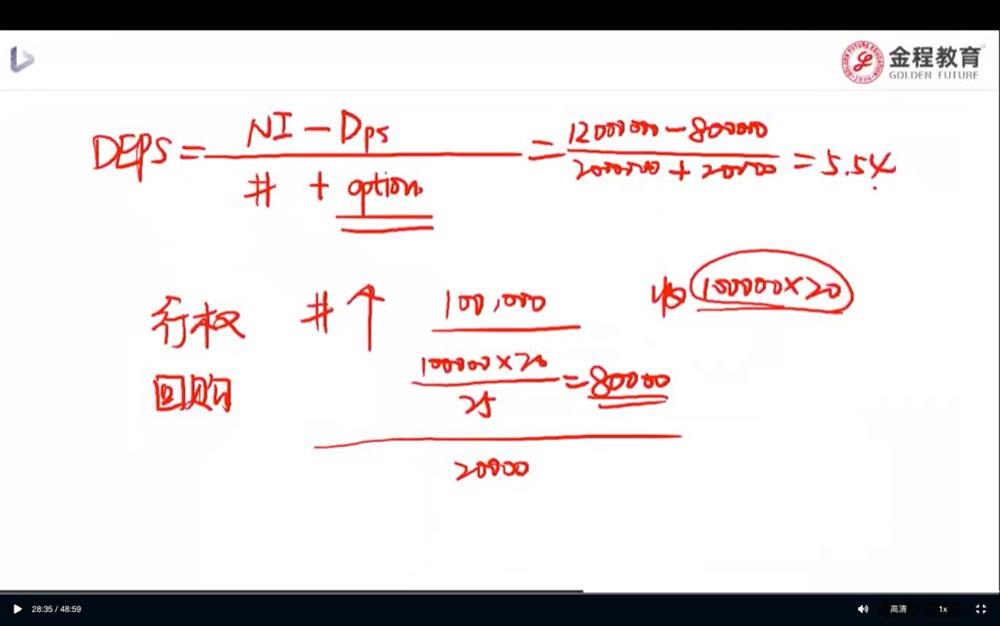 金程教育
GOLDEN FUTURE
DEPS = NI - Dps / # + option = 12000000 - 800000 / 2000000 + 20000 = 5.54
行权 # ↑ 100,000 收 100000×20
回购 100000×20 / 25 = 80000
20000
28:35 / 48:59 高清 1x